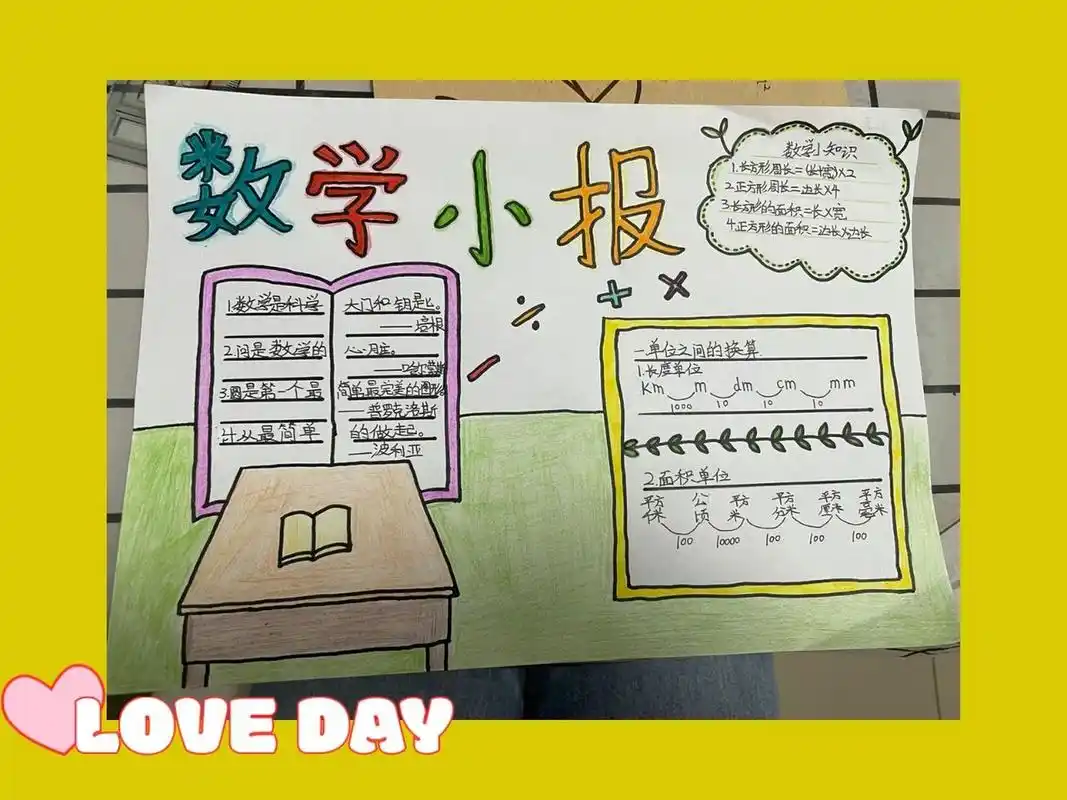 数学小报
数学小知识
1.长方形周长=(长+宽)×2
2.正方形周长=边长×4
3.长方形的面积=长×宽
4.正方形的面积=边长×边长
÷ + × −
1.数学是科学 大门和钥匙。
——培根
2.问是数学的 心脏。
——哈尔莫斯
3.圆是第一个最 简单最完美的图形
——普罗克洛斯
计从最简单 的做起。
——波利亚
一单位之间的换算.
1.长度单位
Km m dm cm mm
1000 10 10 10
2.面积单位
平方千米 公顷 平方米 平方分米 平方厘米 平方毫米
100 10000 100 100 100
LOVE DAY